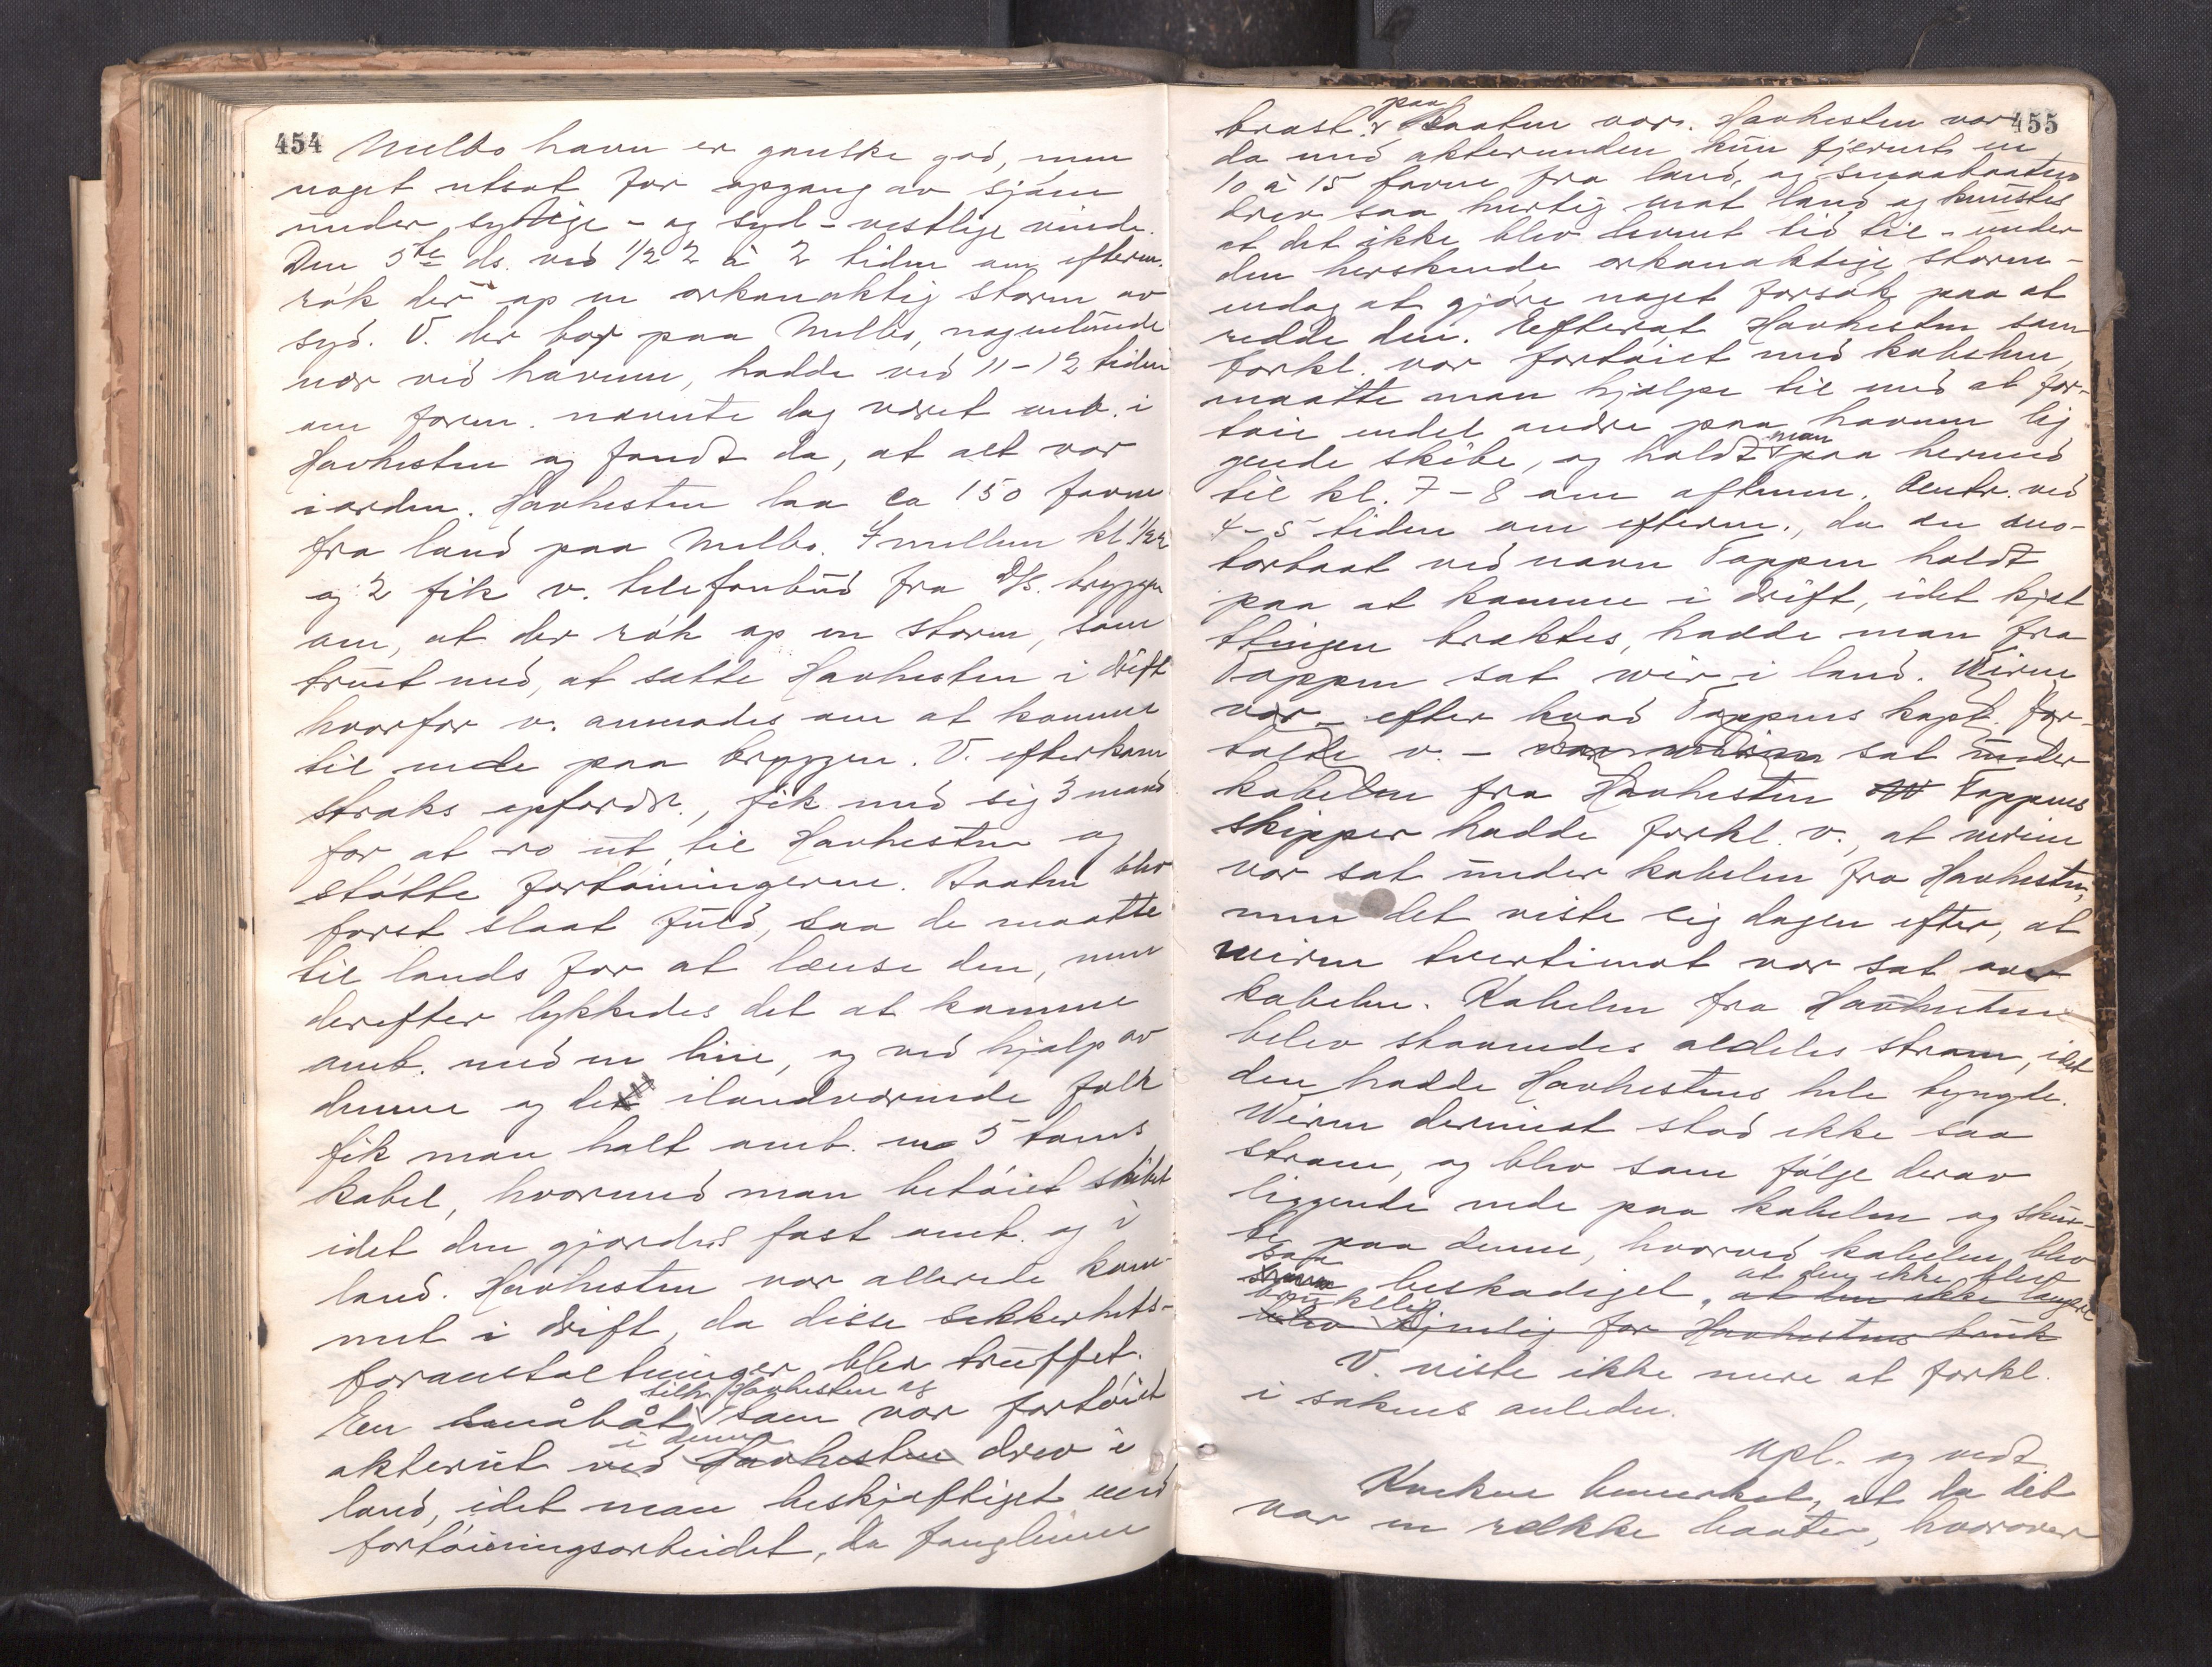 454
Melbo havn er ganske god, men
noget utsat for opgang av sjøen
under sydlige- og syd-vestlige vinde.
Den 5te ds. ved 1/2 2 à 2 tiden om efterm.
røk der op en orkanaktig storm av
syd. V. der bor paa Melbo, nogenlunde
nær ved havnen, hadde ved 11-12 tiden
om form. nævnte dag været omb. i
Havhesten og fandt da, at alt var
i orden. Havhesten laa ca 150 favne
fra land paa Melbo. Imellem kl 1/2 2
og 2 fik v. telefonbud fra D/S. bryggen
om, at der røk op en storm, som
truet med, at sætte Havhesten i drift
hvorfor v. anmodes om at komme
til nede paa bryggen. V. efterkom
straks opfordr., fik med sig 3 mand
for at ro ut til Havhesten og
støtte fortøiningerne. Baaten blev
først slaat fuld, saa de maatte
til lands for at lænse den, men
derefter lykkedes det at komme
omb. med en line, og ved hjælp av
denne og de ilandværende folk
fik man halt omb. en 5 toms
kabel, hvormed man betøiet skibet
idet den gjordes fast omb. og i
land. Havhesten var allerede kom-
met i drift, da disse sikkerhets-
foranstaltninger blev truffet.
tilh. Havhesten og
En småbåt som var fortøiet
i denne
akterut ved Havhesten drev i
land, idet man beskjæftiget med
fortøiningsarbeidet, da fanglinen
455
paa
brast. Baaten var. Havhesten var
da med akterenden kun fjernet en
10 à 15 favne fra land, og smaabaaten
drev saa hurtig mot land og knustes
at det ikke blev levnet tid til - under
den herskende orkanaktige storm -
endog at gjøre noget forsøk paa at
redde den. Efterat Havhesten som
forkl. var fortøiet med kabelen,
maatte man hjælpe til med at for-
tøie endel andre paa havnen lig
man
gende skibe, og holdt paa hermed
til kl. 7-8 om aftenen. Omtr. ved
4-5 tiden om efterm., da en mo-
torbaat ved navn Tappen holdt
paa at komme i drift, idet kjet
tingen braktes, hadde man fra
Tappen sat wir i land. Wiren
var - efter hvad Tappens kapt. for-
talte v. - sat under
kabelen fra Havhesten Tappens
skipper hadde forkl. v., at wiren
var sat under kabelen fra Havhesten,
men det viste sig dagen efter, at
wiren tvertimot var sat over
kabelen. Kabelen fra Havhesten
blev staaendes aldeles stram, idet
den hadde Havhestens hele tyngde.
Wiren derimot stod ikke saa
stram, og blev som følge derav
liggende nede paa kabelen og skur-
te paa denne, hvorved kabelen blev
saa
beskadiget, at den ikke blev
at den ikke længere
brukelig
blev tjenelig for Havhestens bruk
V. viste ikke mere at forkl.
i sakens anledn.
Opl. og vedt.
Knekne bemerket, at da det
var en række baater, hvorover